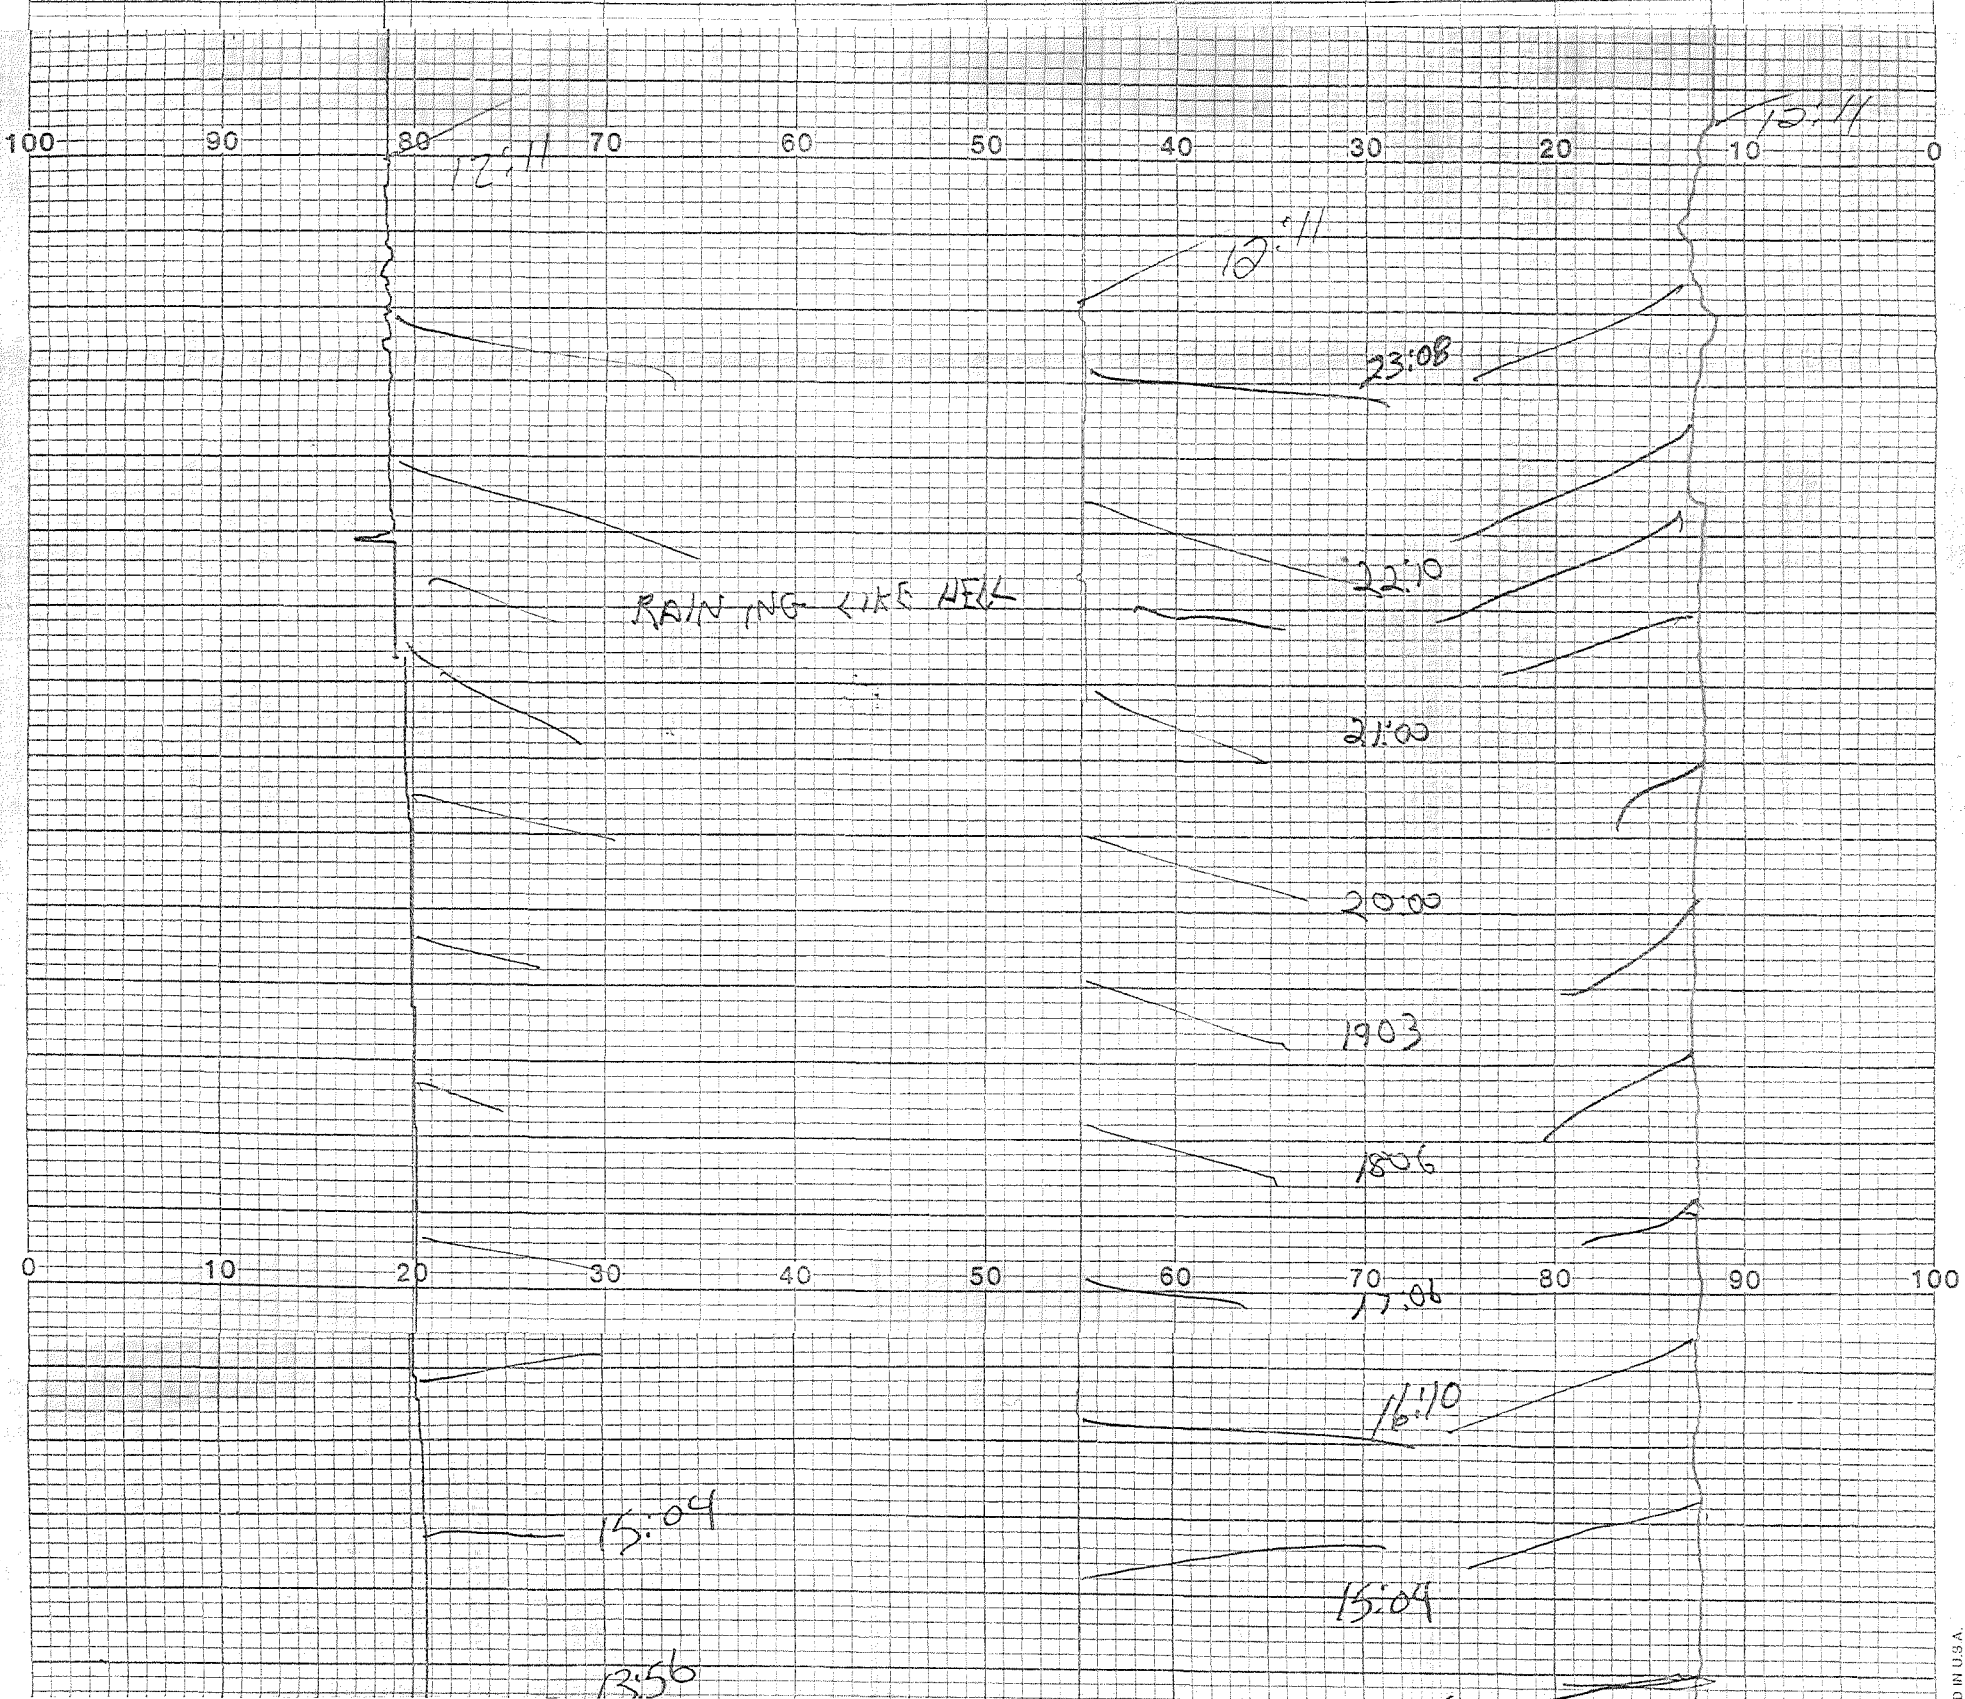 12:11
100 90 80 70 60 50 40 30 20 10 0
12:11
12:11
23:08
22:10
RAINING LIKE HELL
21:00
20:00
1903
1806
0 10 20 30 40 50 60 70 80 90 100
17:06
16:10
15:04
15:04
13:56
D IN U.S.A.